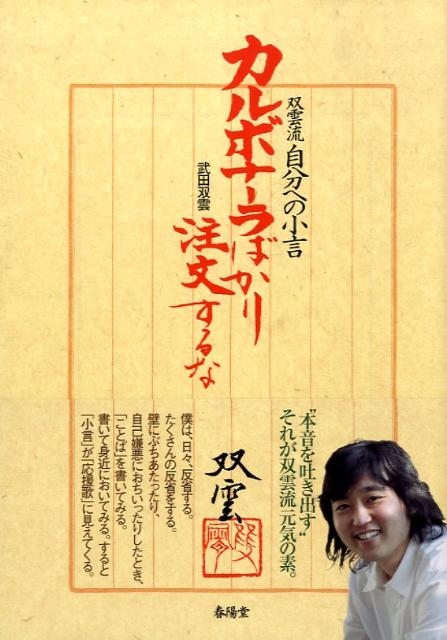 双雲流 自分への小言
カルボナーラばかり
注文するな
武田双雲
"本音を吐き出す"
それが双雲流元気の素。
双雲
僕は、日々、反省する。
たくさんの反省をする。
壁にぶちあたったり、
自己嫌悪におちいったりしたとき、
「ことば」を書いてみる。
書いて身近においてみる。すると
「小言」が「応援歌」に見えてくる。
春陽堂